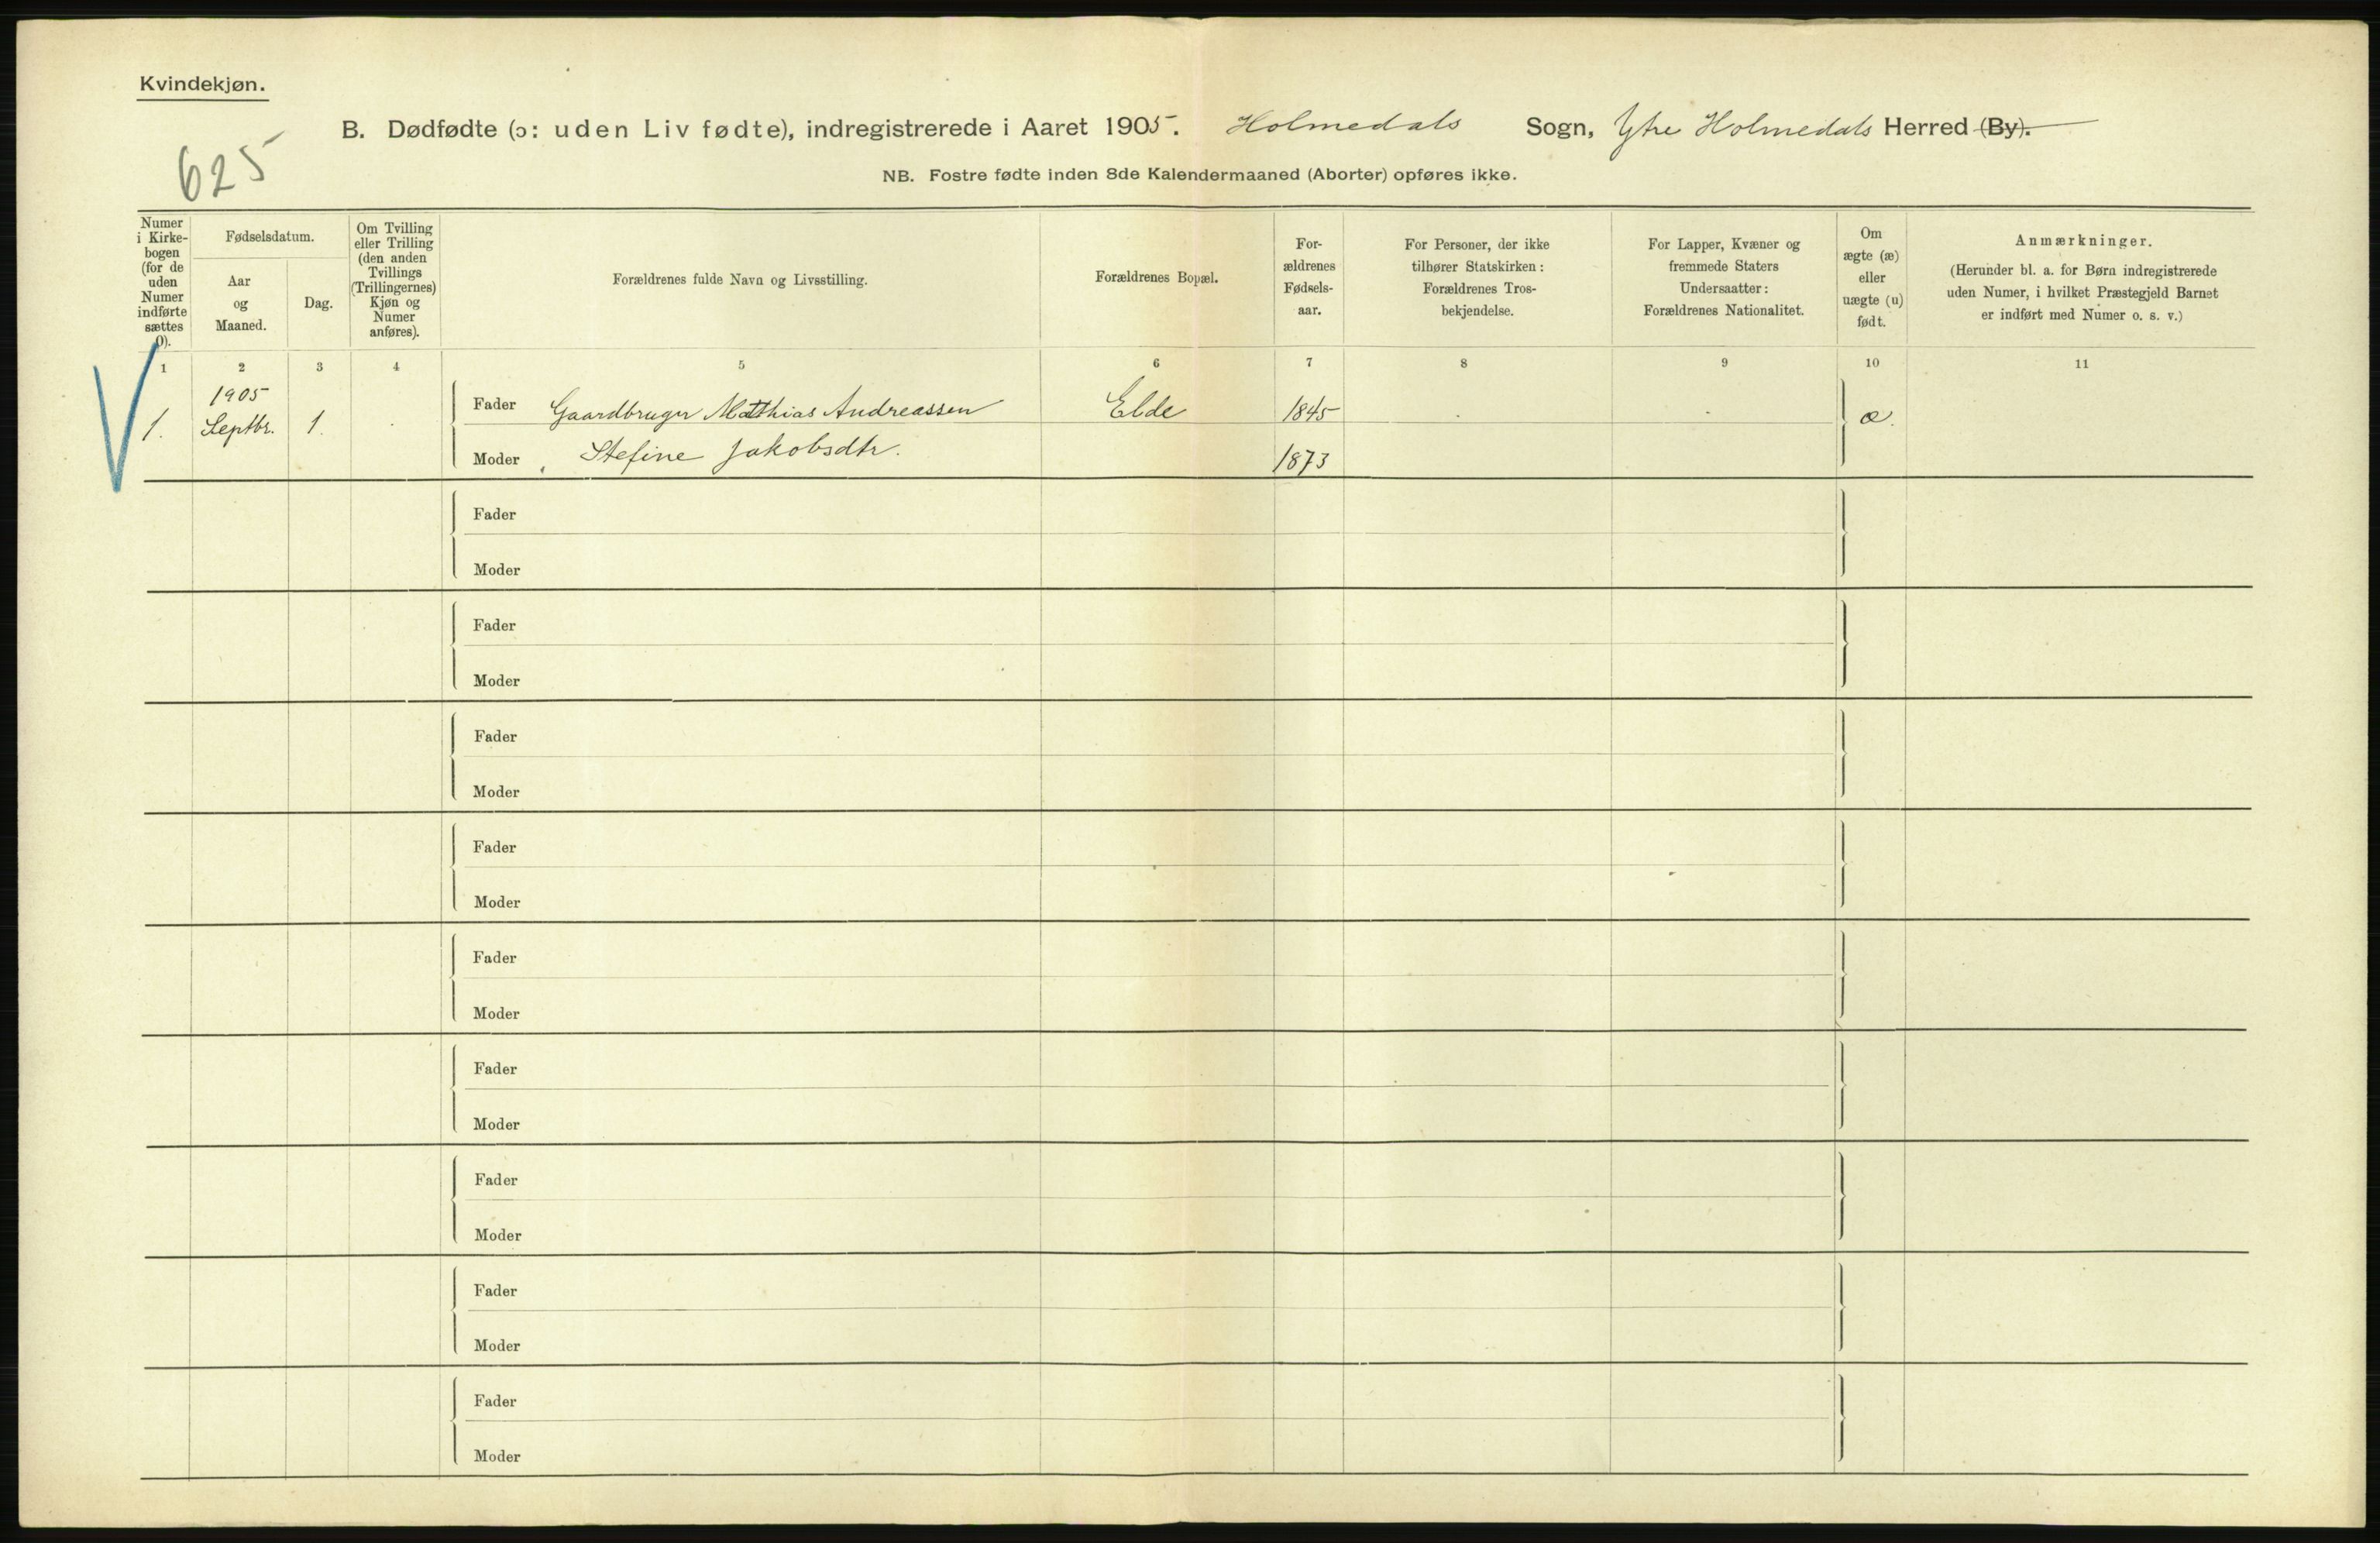 Kvindekjøn.
625
B. Dødfødte (ɔ: uden Liv fødte), indregistrerede i Aaret 1905. Holmedals Sogn, Ytre Holmedals Herred (By).
NB. Fostre fødte inden 8de Kalendermaaned (Aborter) opføres ikke.
Numer
i Kirke-
bogen
(for de
uden
Numer
indførte
sættes
0).
Fødselsdatum.
Aar
og
Maaned.
Dag.
Om Tvilling
eller Trilling
(den anden
Tvillings
(Trillingernes)
Kjøn og
Numer
anføres).
Forældrenes fulde Navn og Livsstilling.
Forældrenes Bopæl.
For-
ældrenes
Fødsels-
aar.
For Personer, der ikke
tilhører Statskirken:
Forældrenes Tros-
bekjendelse.
For Lapper, Kvæner og
fremmede Staters
Undersaatter:
Forældrenes Nationalitet.
Om
ægte (æ)
eller
uægte (u)
født.
Anmærkninger.
(Herunder bl. a. for Børn indregistrerede
uden Numer, i hvilket Præstegjeld Barnet
er indført med Numer o. s. v.)
1 2 3 4 5 6 7 8 9 10 11
1905
1. Septbr. 1. Fader Gaardbruger Matthias Andreassen Elde 1845 æ.
Moder Stefine Jakobsdtr. 1873
Fader
Moder
Fader
Moder
Fader
Moder
Fader
Moder
Fader
Moder
Fader
Moder
Fader
Moder
Fader
Moder
Fader
Moder